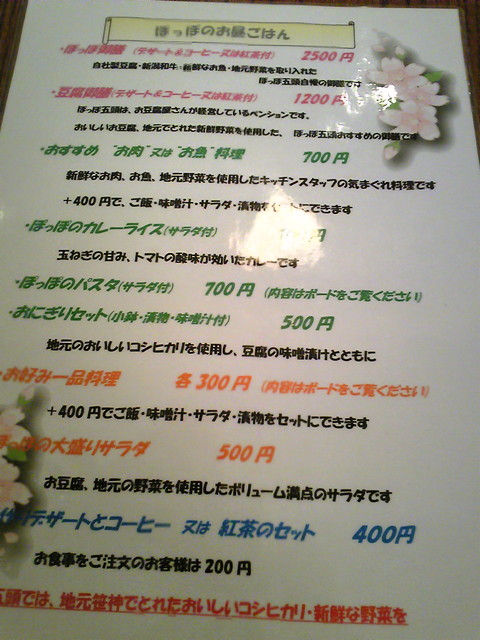 ぽっぽのお昼ごはん
・ぽっぽ御膳 (デザート＆コーヒー又は紅茶付) 2500円
自社製豆腐・新潟和牛・新鮮なお魚・地元野菜を取り入れた
ぽっぽ五頭自慢の御膳です
・豆腐御膳(デザート＆コーヒー又は紅茶付) 1200円
ぽっぽ五頭は、お豆腐屋さんが経営しているペンションです。
おいしいお豆腐、地元でとれた新鮮野菜を使用した、 ぽっぽ五頭おすすめの御膳です
・おすすめ “お肉”又は“お魚”料理 700円
新鮮なお肉、お魚、地元野菜を使用したキッチンスタッフの気まぐれ料理です
＋400円で、ご飯・味噌汁・サラダ・漬物をセットにできます
・ぽっぽのカレーライス(サラダ付) 円
玉ねぎの甘み、トマトの酸味が効いたカレーです
・ぽっぽのパスタ(サラダ付) 700円 (内容はボードをご覧ください)
・おにぎりセット(小鉢・漬物・味噌汁付) 500円
地元のおいしいコシヒカリを使用し、豆腐の味噌漬けとともに
お好み一品料理 各300円 (内容はボードをご覧ください)
＋400円でご飯・味噌汁・サラダ・漬物をセットにできます
ぽっぽの大盛りサラダ 500円
お豆腐、地元の野菜を使用したボリューム満点のサラダです
作りデザートとコーヒー 又は 紅茶のセット 400円
お食事をご注文のお客様は200円
五頭では、地元笹神でとれたおいしいコシヒカリ・新鮮な野菜を